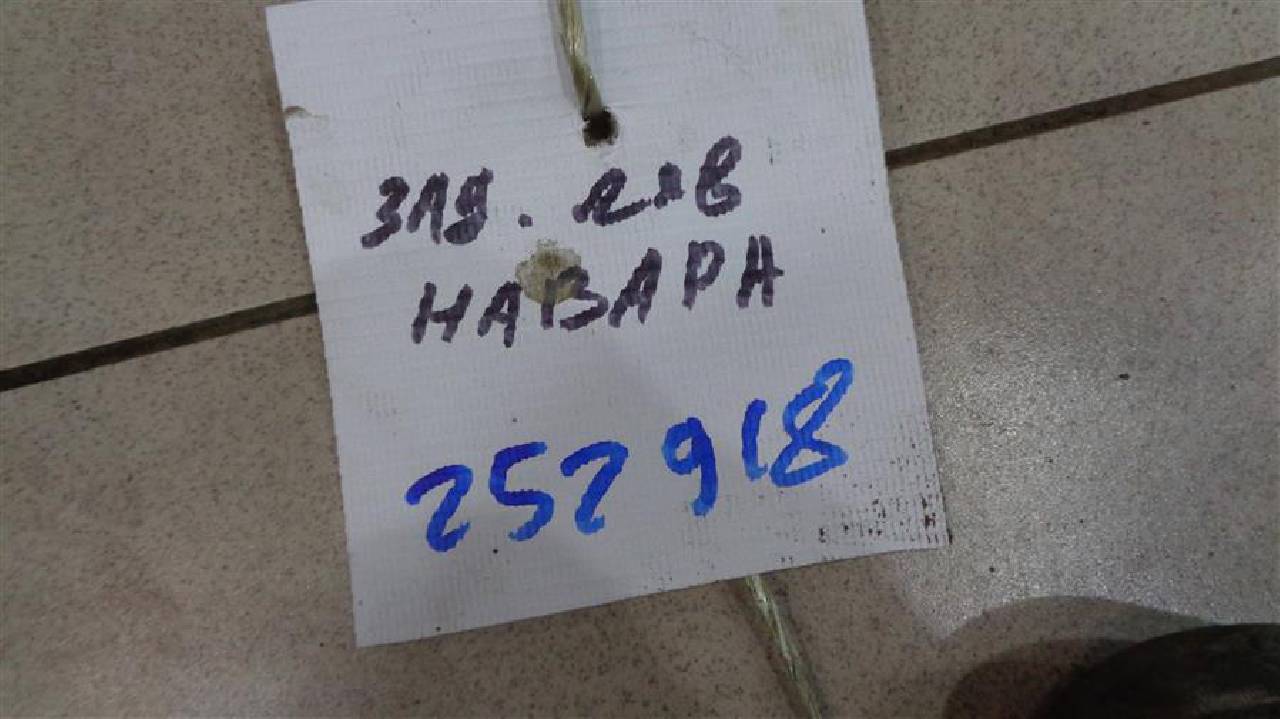 ЗАД. лев
НАВАРА
252918